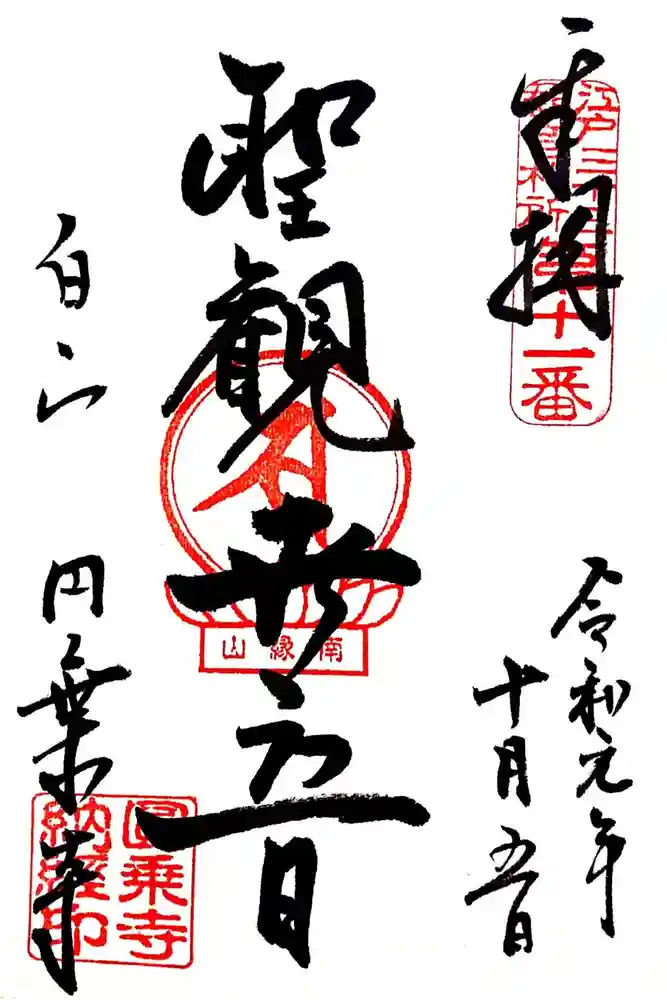 奉拝
江戸三十三
観音札所
第十一番
令和元年
十月五日
聖観世音
南縁山
白山
円乗寺
圓乗寺
納經印